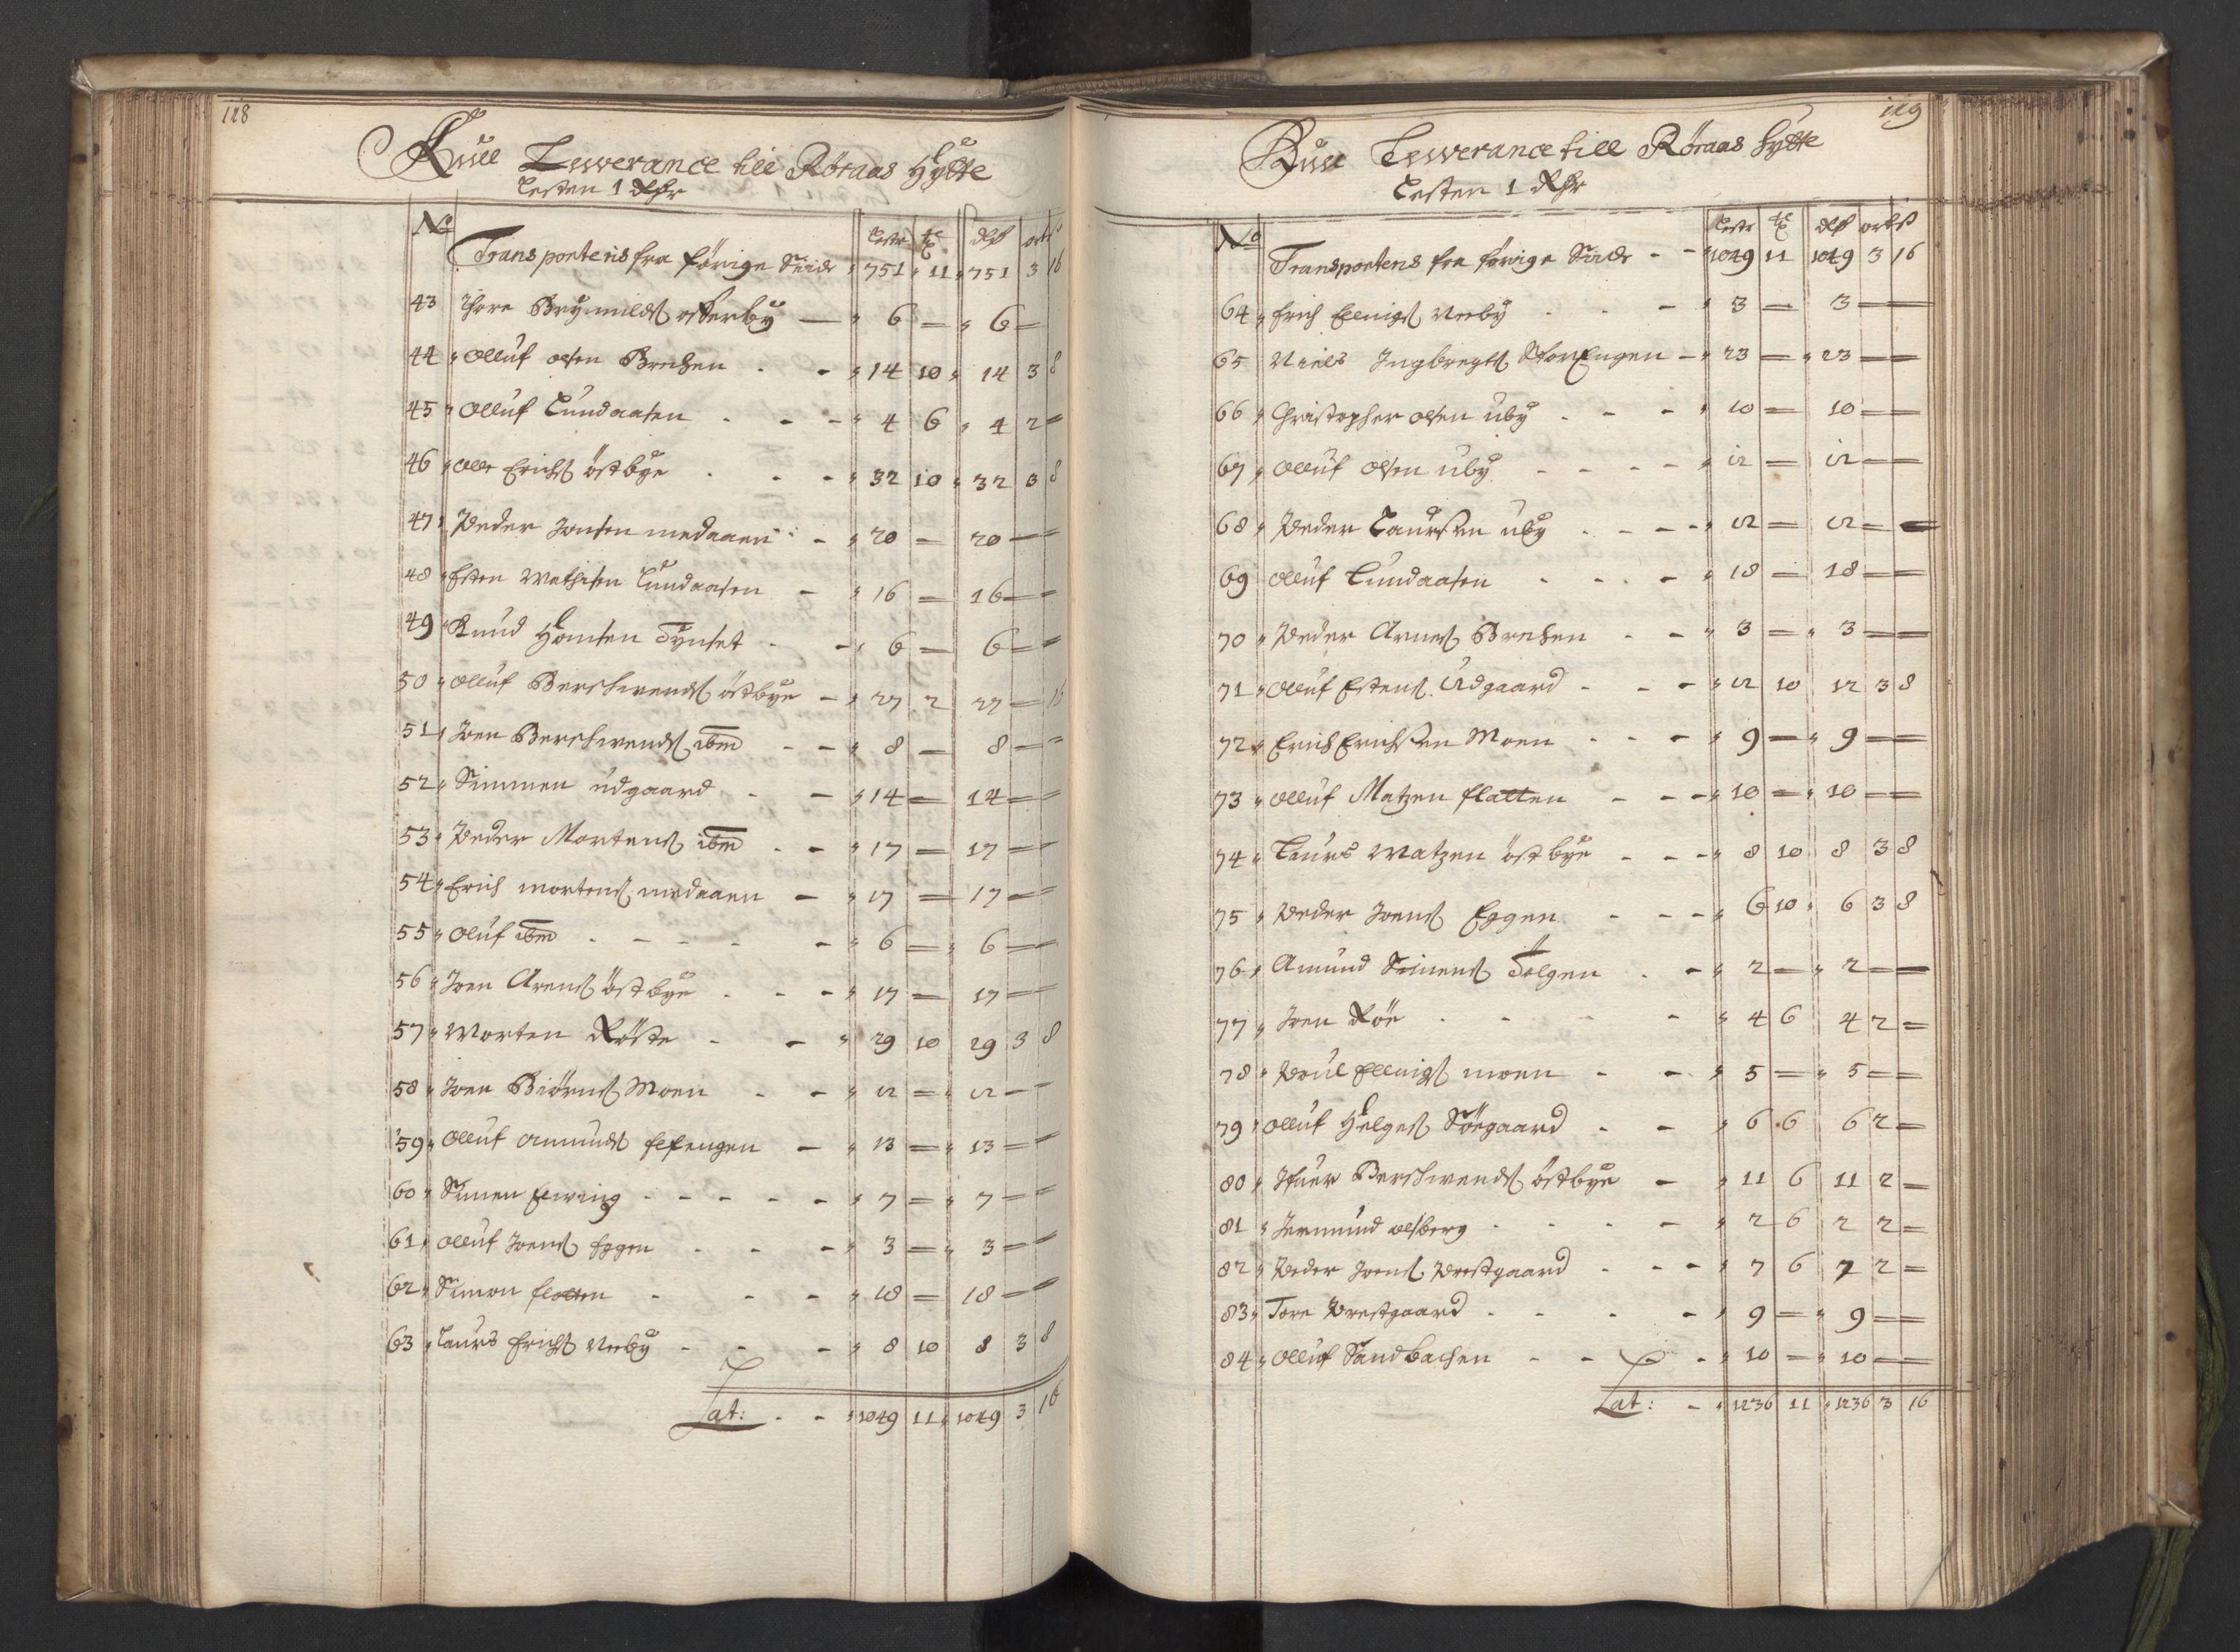 128
Kull Leverance till Röraas Hytte
Lesten 1 Rdr
No Lester tr rdr ort ß
Transporteris fra forige Siide 751 11 751 3 16
43 Thore Brÿnnilds østerbÿ 6 — 6 —
44 Olluf olsen Brechen 14 10 14 3 8
45 Olluf Lundaasen 4 6 4 2 —
46 Olle Erichs östbÿe 32 10 32 3 8
47 Peder Jonsen medaaen 20 — 20 —
48 Esten Mathisen Lundaasen 16 — 16 —
49 Knud Hansen Tÿnset 6 — 6 —
50 Olluf Berschvends östbÿe 27 2 27 — 16
51 Joen Berschvends ibm 8 — 8 —
52 Simmen udgaard 14 — 14 —
53 Peder Mortens ibm 17 — 17 —
54 Erich mortens medaaen 17 — 17 —
55 Oluf ibm 6 — 6 —
56 Joen Arens östbÿe 17 — 17 —
57 Morten Röste 29 10 29 3 8
58 Joen Biörns Moen 12 — 12 —
59 Olluf Amunds Elfengen 13 — 13 —
60 Simen 7 — 7 —
61 Olluf Joens Eggen 3 — 3 —
62 Simon flatten 18 — 18 —
63 Laurs Erichs Neebÿ 8 10 8 3 8
Lat: 1049 11 1049 3 16
129
Kull Leverance till Röraas Hytte
Lesten 1 Rdr
No Lestr tr rdr ort ß
Transporteris fra forige Siide 1049 11 1049 3 16
64 Erich Ellings Neebÿ 3 — 3 —
65 Niels Ingbregts StorEngen 23 — 23 —
66 Christopher olsen ubÿ 10 — 10 —
67 Olluf olsen ubÿ 12 — 12 —
68 Peder Laursen ubÿ 12 — 12 —
69 Olluf Lundaasen 18 — 18 —
70 Peder Arnes Brechen 3 — 3 —
71 Olluf Estens Udgaard 12 10 12 3 8
72 Erich Erichsen Moen 9 — 9 —
73 Olluf Matzen flatten 10 — 10 —
74 Laurs Matzen östbÿe 8 10 8 3 8
75 Peder Joens Eggen 6 10 6 3 8
76 Amund Simens Tölgen 2 — 2 —
77 Joen Röe 4 6 4 2 —
78 Poul Ellings moen 5 — 5 —
79 Olluf Helges Söegaard 6 6 6 2 —
80 Ifuer Berschvends östbÿe 11 6 11 2 —
81 Jermund olsberg 2 6 2 2 —
82 Peder Joens Vestgaard 7 6 7 2 —
83 Tore Vestgaard 9 — 9 —
84 Olluf Sandbachen 10 — 10 —
Lat: 1236 11 1236 3 16